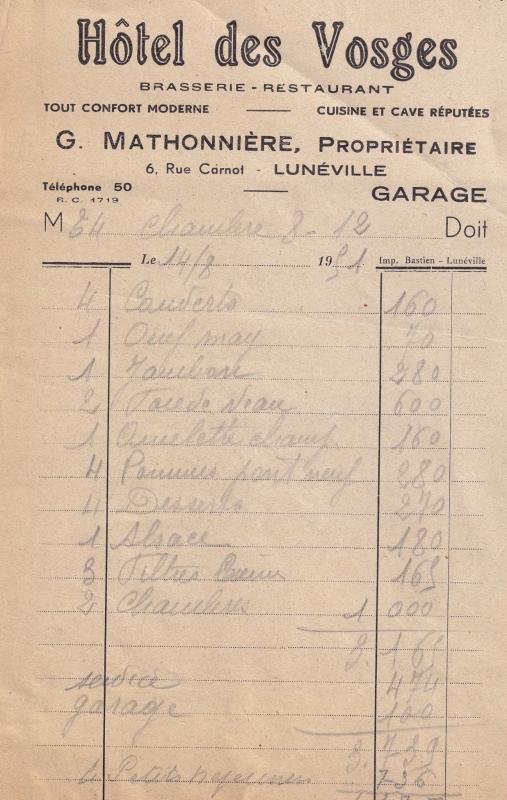 Hôtel des Vosges
BRASSERIE - RESTAURANT
TOUT CONFORT MODERNE — CUISINE ET CAVE RÉPUTÉES
G. MATHONNIÈRE, PROPRIÉTAIRE
6, Rue Carnot - LUNÉVILLE
Téléphone 50
R. C. 1719
GARAGE
M 24 Chambre 8 - 12 Doit
Le 14/8 1951 Imp. Bastien - Lunéville
4 Couverts 160
1 Oeuf may 70
1 Jambon 280
2 Foie de Veau 600
1 Omelette champ 160
4 Pommes pont neuf 280
4 Desserts 270
1 Alsace 180
3 Filtres 165
2 Chambres 1 000
3. 165
service 474
garage 100
3. 739
Petits dejeuners 736